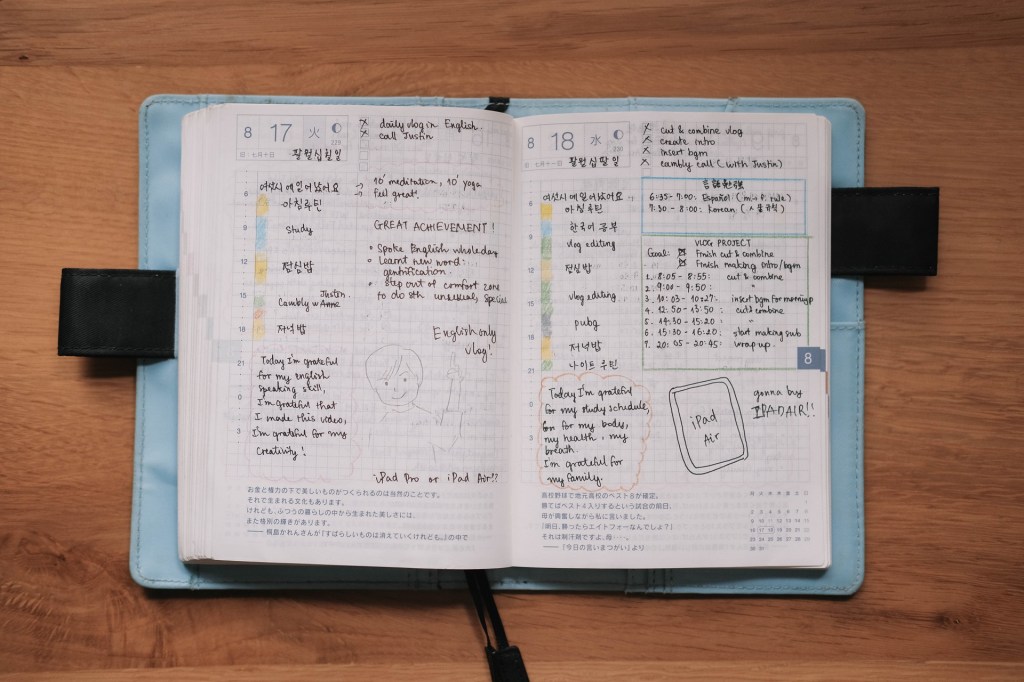 8 17 火
229
旧:七月十日
팔월십칠일
X daily vlog in English.
X call Justin
6
여섯시에 일어났어요
아침루틴
→ 10' meditation, 10' yoga
→ feel great!
9
study
GREAT ACHIEVEMENT!
• Spoke English whole day
• Learnt new word:...
gentrification.
• step out of comfort zone
to do sth unusual, special
12
점심밥
15
Justin
Cambly w Anne
18
저녁밥
English only
vlog!
21
Today I'm grateful
for my english
speaking skill,
0
I'm grateful that
I made this video,
3
I'm grateful for my
creativity!
-iPad Pro or iPad Air!?
お金と権力の下で美しいものがつくられるのは当然のことです。
それで生まれる文化もあります。
けれども、ふつうの暮らしの中から生まれた美しさには、
また格別の輝きがあります。
—— 桐島かれんさんが『すばらしいものは消えていくけれど。』の中で
8 18 水
230
旧:七月十一日
팔월십팔일
X cut & combine vlog
X create intro
X insert bgm
X cambly call (with Justin)
6
여섯시에 일어났어요
아침루틴
9
한국어 공부
vlog editing
12
점심밥
15
vlog editing
18
pubg
저녁밥
21
나이트 루틴
6:35 - 7:00: Español
7:30 - 8:00: Korean
VLOG PROJECT
Goal: Finish cut & combine
Finish making intro/bgm
1. 8:05 - 8:55: cut & combine
2. 9:00 - 9:50: "
3. 10:03 - 10:27: insert bgm for morning
4. 12:50 - 13:50: cut & combine
5. 14:30 - 15:20: "
6. 15:30 - 16:20: start making sub
7. 20:05 - 20:45: wrap up.
8
Today I'm grateful
0
for my study schedule,
for my body,
3
my health, my
breath.
I'm grateful for
my family.
iPad
Air
gonna buy
IPAD AIR!!
高校野球で地元高校のベスト8が確定。
勝てばベスト4入りするという試合の前日、
母が興奮しながら私に言いました。
「明日、勝ったらエイトフォーなんでしょ?」
それは制汗剤ですよ、母……。
—— 『今日の言いまつがい』より
月 火 水 木 金 土 日
1
2 3 4 5 6 7 8
9 10 11 12 13 14 15
16 17 18 19 20 21 22
23 24 25 26 27 28 29
30 31